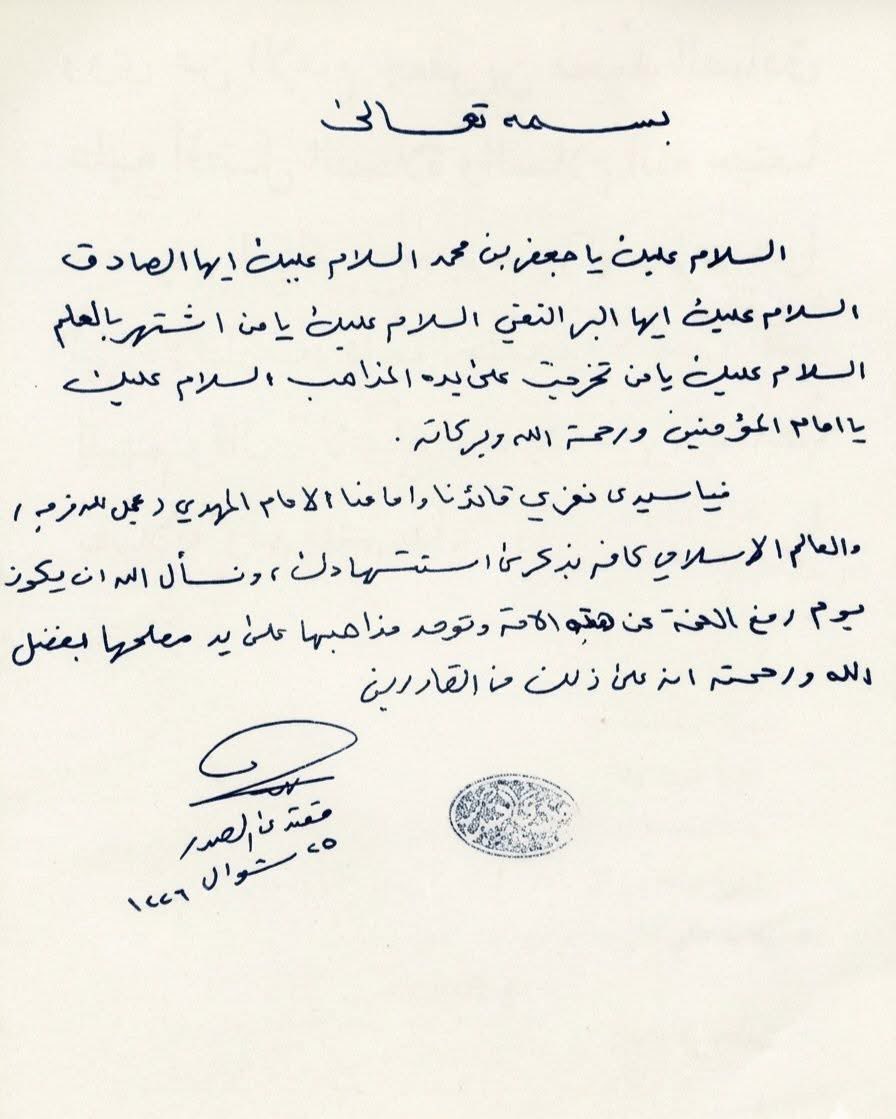 بسمه تعالى
السلام عليك يا جعفر بن محمد السلام عليك ايها الصادق
السلام عليك ايها البر التقي السلام عليك يا من اشتهر بالعلم
السلام عليك يا من تخرجت على يده المذاهب السلام عليك
يا امام المؤمنين ورحمة الله وبركاته .
فيا سيدي نعزي قائدنا وامامنا الامام المهدي (عجل الله فرجه)
والعالم الاسلامي كافة بذكرى استشهادك ، ونسأل الله ان يكون
يوم رفع الغمة عن هذه الامة وتوحد مذاهبها على يد مصلحها بفضل
الله ورحمته انه على ذلك من القادرين
مقتدى الصدر
٢٥ شوال ١٤٤٦